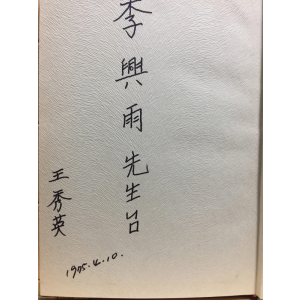 李興雨先生台
王秀英
1975.4.10.